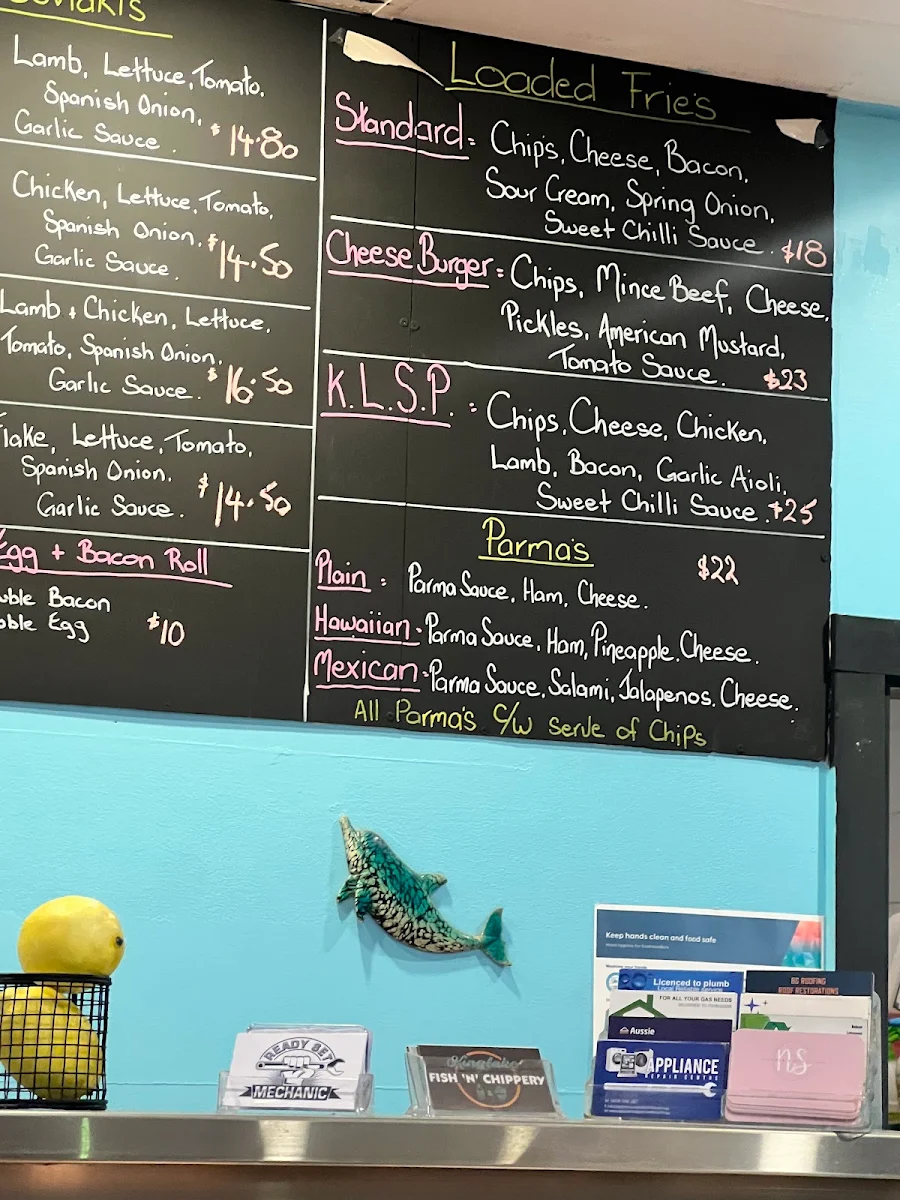 Lamb, Lettuce, Tomato,
Spanish Onion,
Garlic Sauce. $14.80
Chicken, Lettuce, Tomato,
Spanish Onion,
Garlic Sauce. $14.50
Lamb + Chicken, Lettuce,
Tomato, Spanish Onion,
Garlic Sauce. $16.50
Lettuce, Tomato,
Spanish Onion.
Garlic Sauce. $14.50
Egg + Bacon Roll
Bacon
Egg $10
Loaded Frie's
Standard = Chips, Cheese, Bacon,
Sour Cream, Spring Onion,
Sweet Chilli Sauce. $18
Cheese Burger = Chips, Mince Beef, Cheese,
Pickles, American Mustard,
Tomato Sauce. $23
K.L.S.P. = Chips, Cheese, Chicken,
Lamb, Bacon, Garlic Aioli,
Sweet Chilli Sauce. $25
Parma's $22
Plain = Parma Sauce, Ham, Cheese.
Hawaiian = Parma Sauce, Ham, Pineapple, Cheese.
Mexican = Parma Sauce, Salami, Jalapenos, Cheese.
All Parma's C/W serve of Chips
READY SET
MECHANIC
Kinglake
FISH 'N' CHIPPERY
Keep hands clean and food safe
Licenced to plumb
Local Reliable Service
FOR ALL YOUR GAS NEEDS
Aussie
APPLIANCE
REPAIR CENTRE
ROOFING
ROOF RESTORATIONS
ns